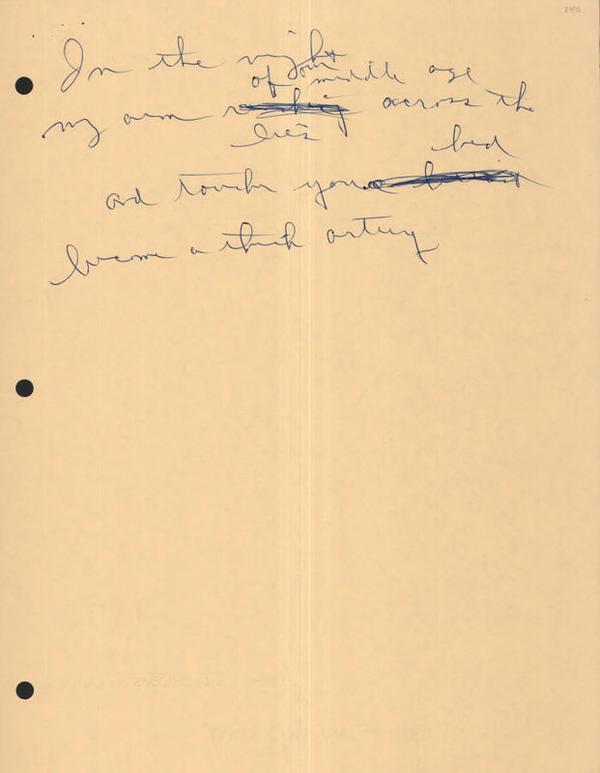 140
In the night
of our middle age
my arm across the
lies bed
and touches you
become a thick artery